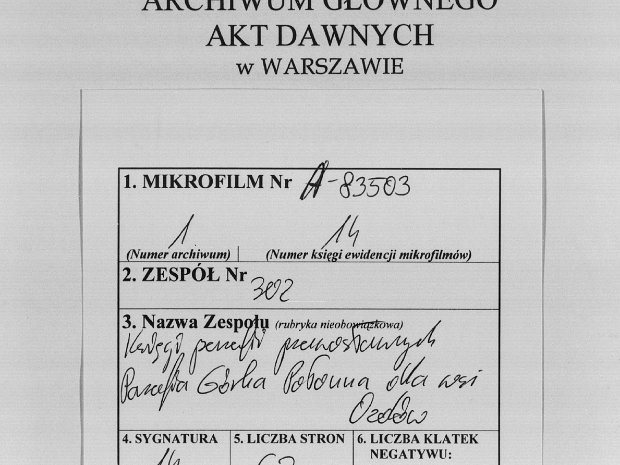 ARCHIWUM GŁÓWNEGO
AKT DAWNYCH
w WARSZAWIE
1. MIKROFILM Nr A-83503
1 14
(Numer archiwum) (Numer księgi ewidencji mikrofilmów)
2. ZESPÓŁ Nr 302
3. Nazwa Zespołu (rubryka nieobowiązkowa)
Księgi parafii prawosławnych
Parafia Górka Pobonna dla wsi
Ozdów
4. SYGNATURA 5. LICZBA STRON 6. LICZBA KLATEK
NEGATYWU:
14